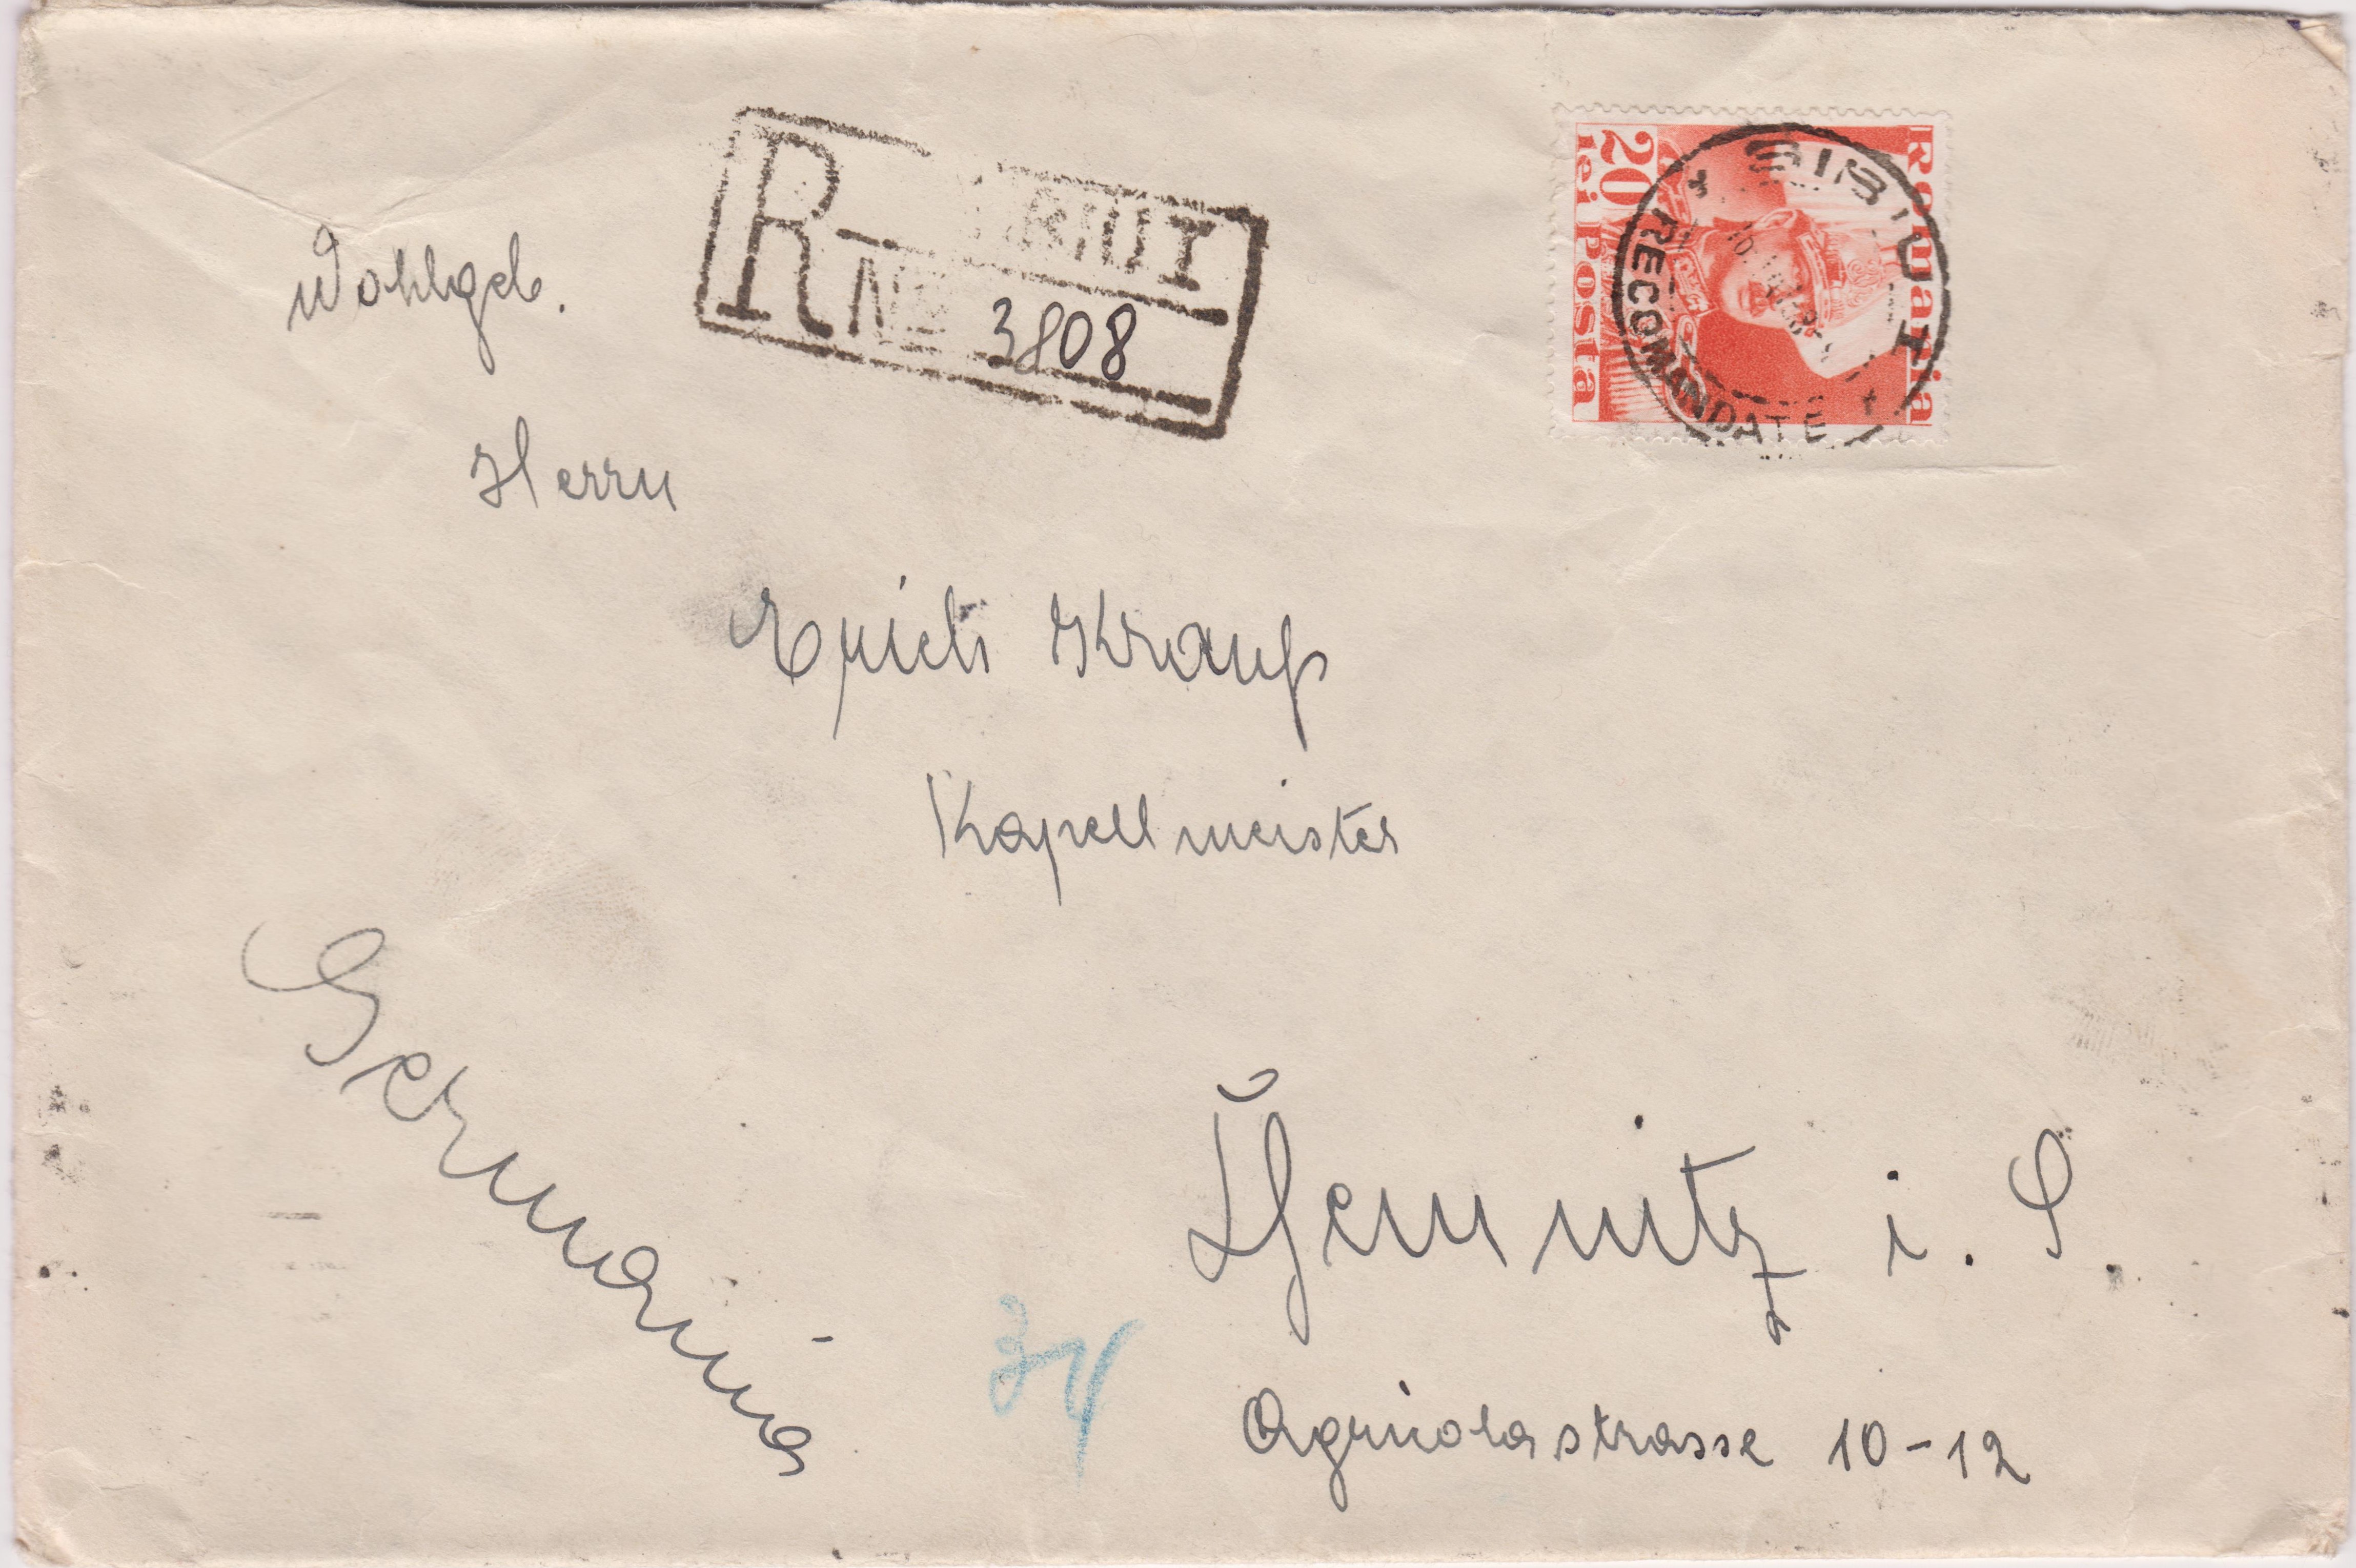 Wohlgeb.
R SIBIU I
No 3808
Romania
20 lei Posta
SIBIU I
RECOMANDATE
Herrn
Erich Krauß
Kapellmeister
Germania
Chemnitz i. S.
Agricolastrasse 10-12